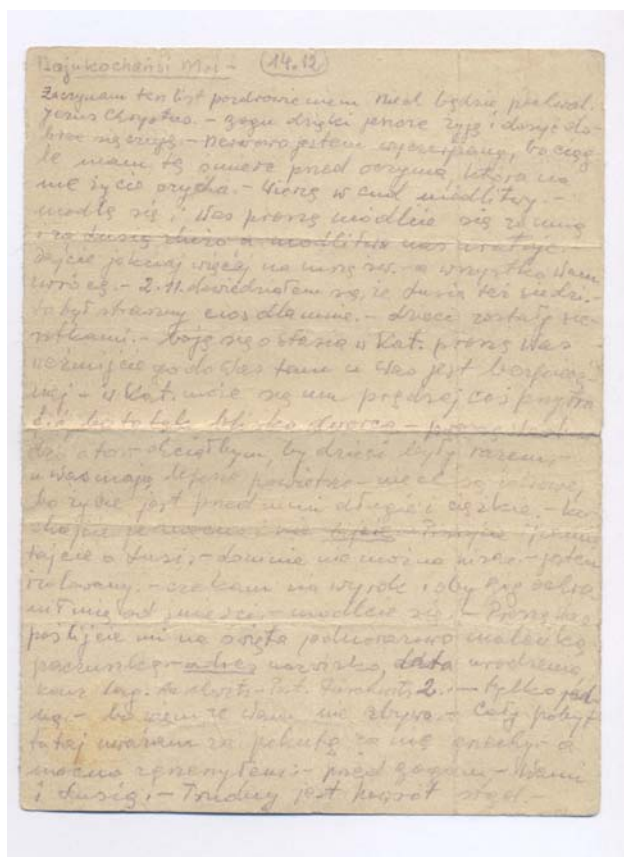 Najukochańsi Moi - (14.12)
Zaczynam ten list pozdrowieniem niech będzie pochwal.
Jezus Chrystus. - Bogu dzięki jeszcze żyję i dosyć do-
brze się czuję. - Nerwowo jestem wyczerpany, bo ciąg-
le mam tę śmierć przed oczyma, która na
me życie czycha. - Wierzę w cud modlitwy. -
modlę się i Was proszę módlcie się za mną
i za Lusię dużo a modlitwa nas uratuje.
Dajcie jak najwięcej na mszę św. - a wszystko Wam
wrócę. - 2.11. dowiedziałem się, że Lusia też siedzi. -
to był straszny cios dla mnie. - dzieci zostały sie-
rotkami. - boję się o Stasia w Kat. proszę Was
weźmijcie go do Was tam u Was jest bezpiecz-
niej - w Kat. może się mu prędzej coś przytra-
fić bo to tak blisko dworca -
o to. - chciałbym, by dzieci były razem, -
u Was mają lepsze powietrze - niech są zdrowe,
bo życie jest przed nimi długie i ciężkie. - ko-
chajcie je mocno i nie bijcie -
tajcie o Lusi, - do mnie nie można pisać. - jestem
izolowany. - czekam na wyrok i oby Bóg zachra-
nił mię od śmierci. - módlcie się. - Proszę Was
poślijcie mi na święta jednorazowo maleńką
paczuszkę - adres nazwisko, data urodzenia
konz. lag. Auschwitz - Pst. Auschwitz 2. - tylko jed-
ną. - bo wiem że Wam nie zbywa. - Cały pobyt
tutaj uważam za pokutę za me grzechy - a
mocno zgrzeszyłem: - przed Bogiem - Wami
i Lusią. - Trudny jest powrót stąd. -